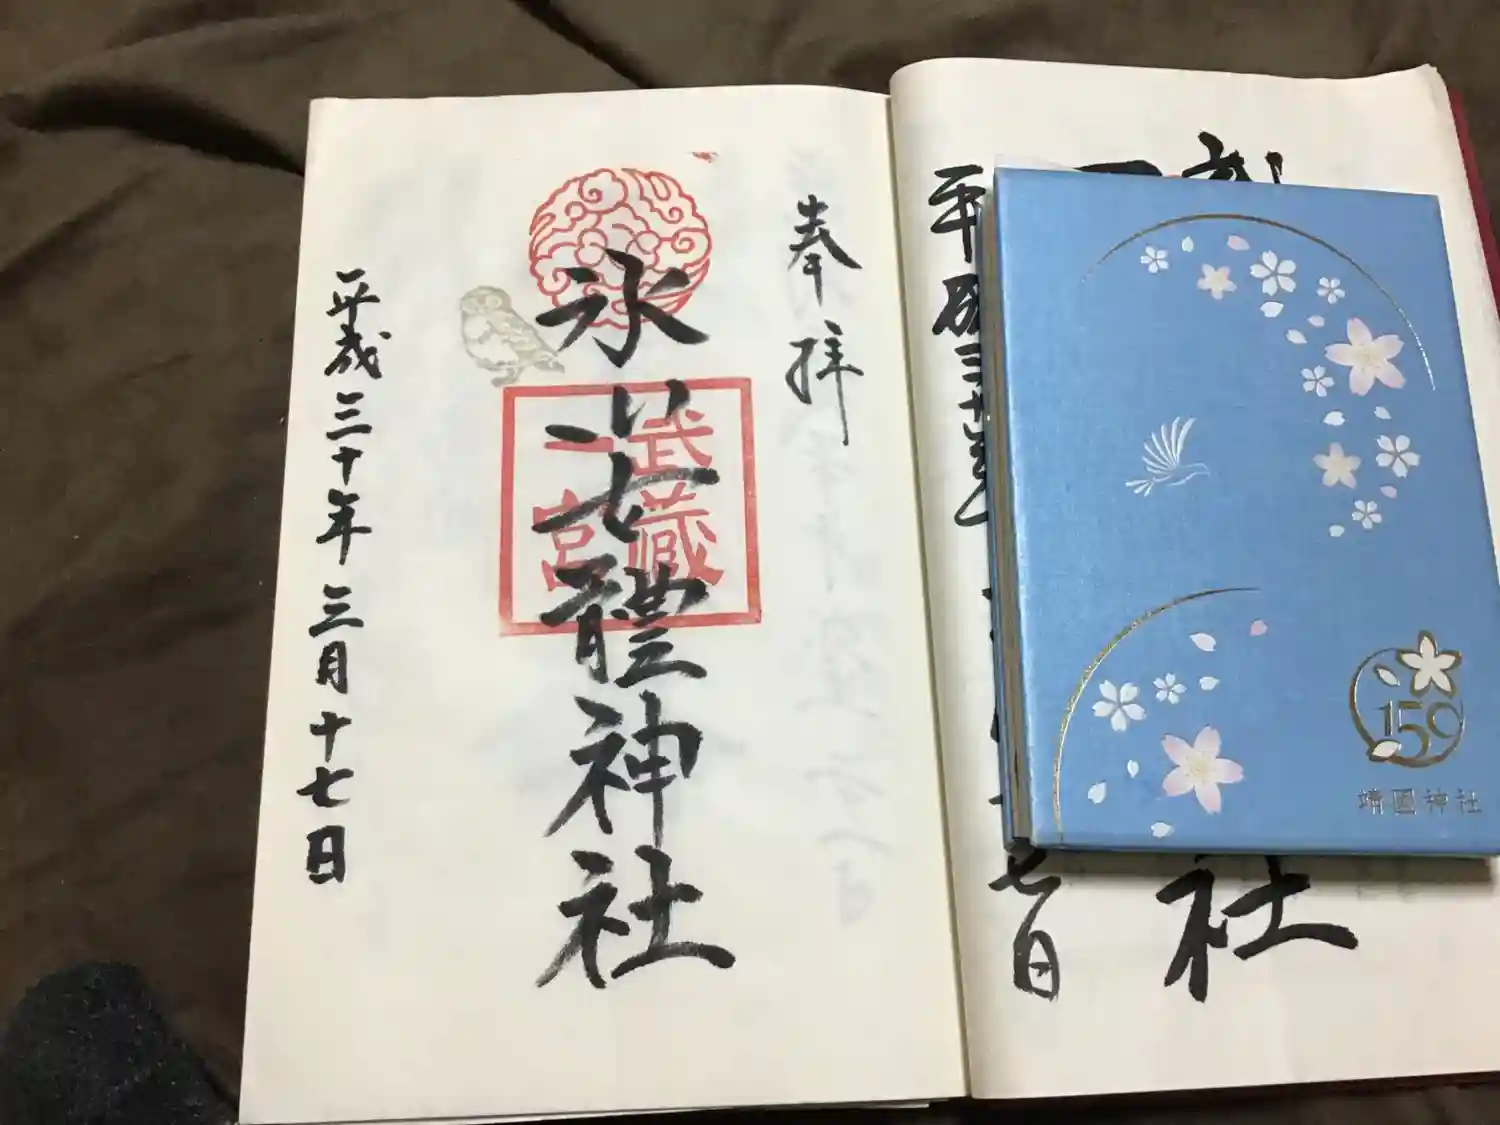 社
平成三十年
七日
159
靖國神社
奉拝
氷川女體神社
武蔵
一宮
平成三十年三月十七日